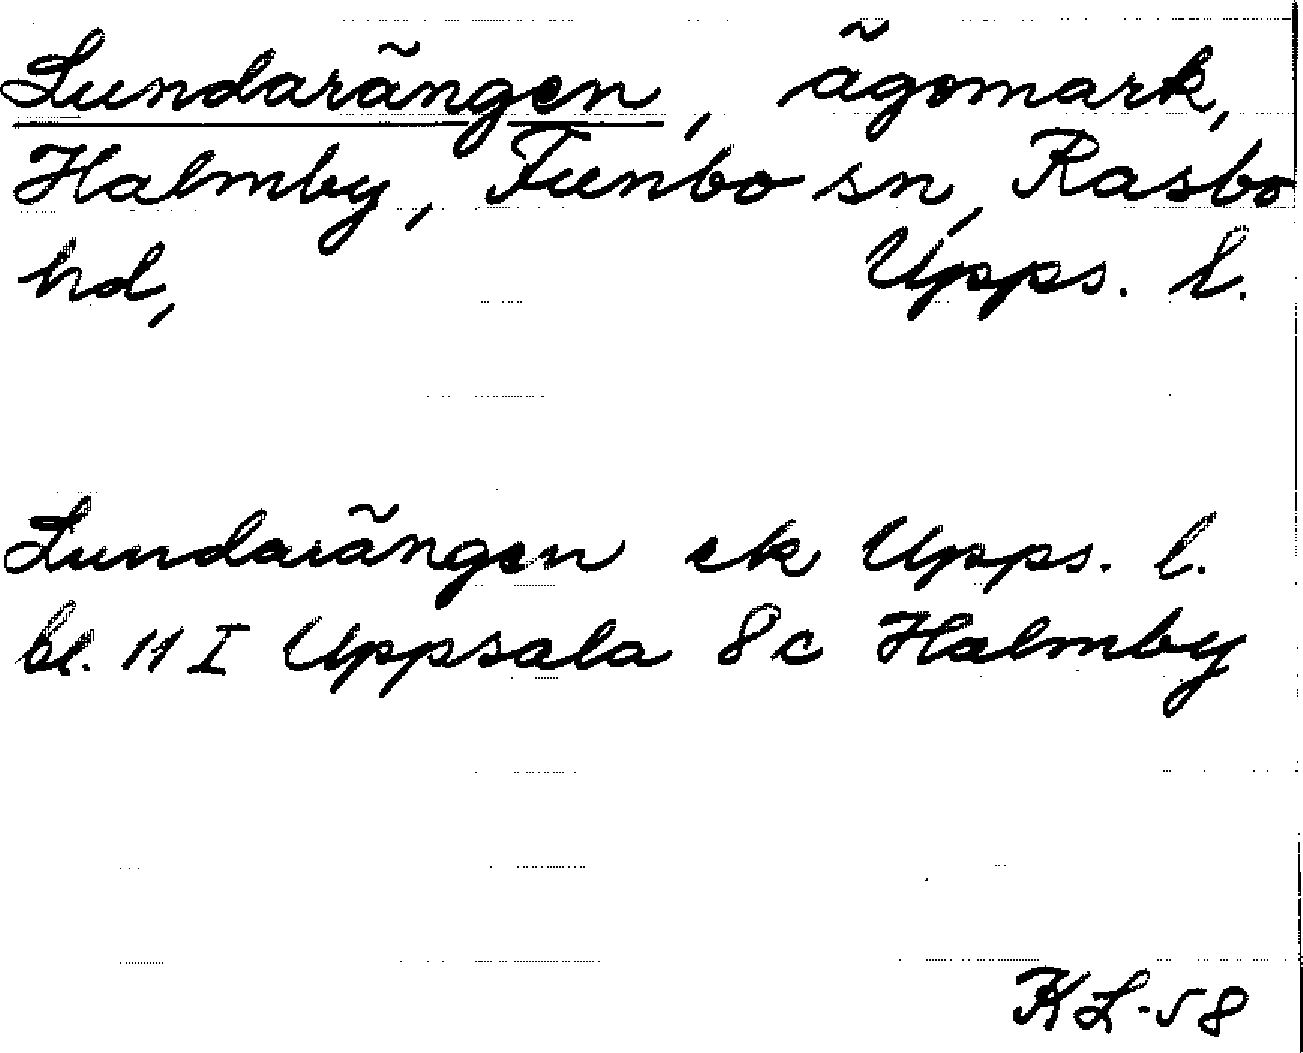 Lundarängen, ägomark,
Halmby, Funbo sn, Rasbo
hd, Upps. l.
Lundarängen ek Upps. l.
bl. 11 I Uppsala 8 c Halmby
KL-58